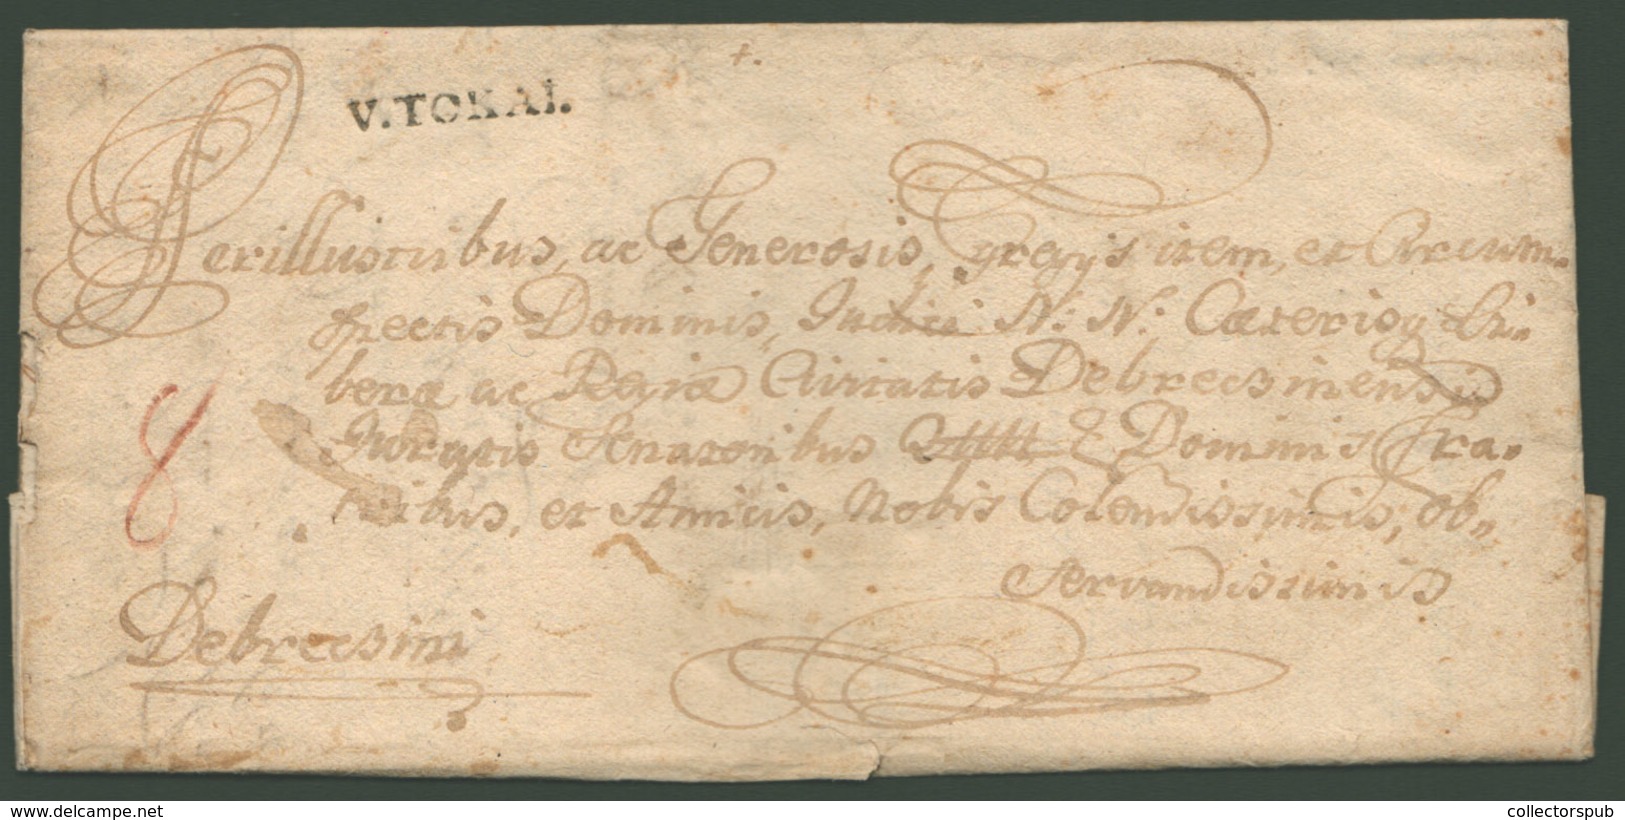 V. TOKAI.
Perillustribus, ac Generosis, Egregys item, et Circum-
spectis Dominis, Judici N: N: Caeterisq Li-
berae ac Regiae Civitatis Debreczinensis
Juratis Senatoribus & Dominis Fra-
tribus, et Amicis, Nobis Colendissimis, ob-
servandissimis
8
Debreczini
delcampe.net
collectorspub